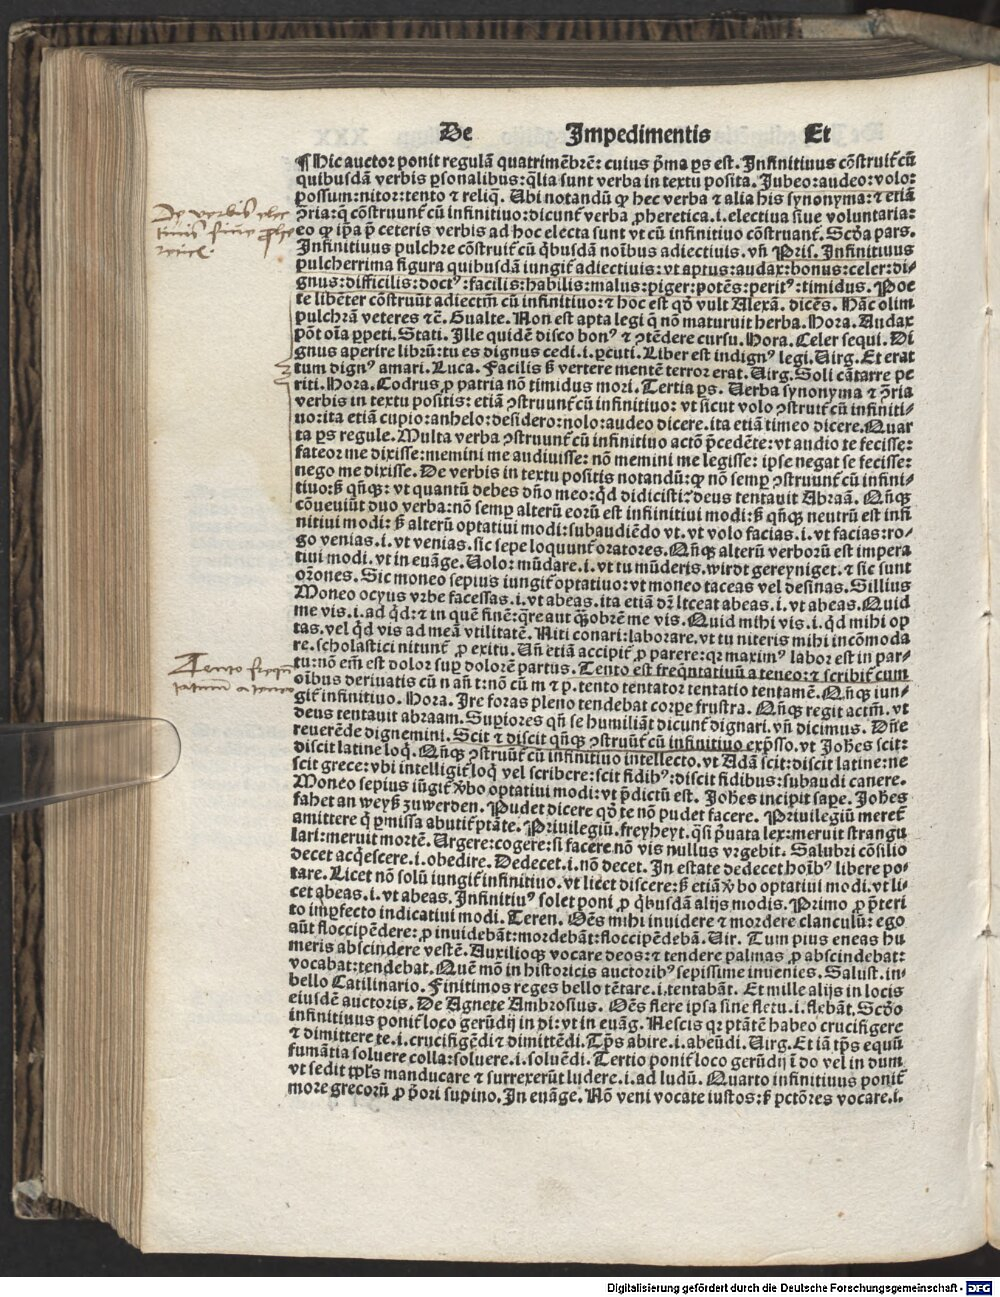 De Impedimentis Et
¶ Hic auctor ponit regulā quatrimēbrē: cuius p̄ma ps est. Infinitiuus cōstruit̄ cū
quibusdā verbis ꝑsonalibus: q̄lia sunt verba in textu posita. Jubeo: audeo: volo:
possum: nitor: tento ⁊ reliq̄. Ubi notandū ꝙ hec verba ⁊ alia his synonyma: ⁊ etiā
ꝯ̄ria: q̄ cōstruunt̄ cū infinitiuo: dicunt̄ verba ꝓheretica .i. electiua siue voluntaria:
eo ꝙ ip̄a p̄ ceteris verbis ad hoc electa sunt vt cū infinitiuo cōstruant̄. Scḋa pars.
Infinitiuus pulchre cōstruit̄ cū q̇busdā noībus adiectiuis. vn̄ Pris. Infinitiuus
pulcherrima figura quibusdā iungit̄ adiectiuis: vt aptus: audax: bonus: celer: di⸗
gnus: difficilis: doctꝰ: facilis: habilis: malus: piger: potēs: peritꝰ: timidus. Poe
te libēter cōstruūt adiectm̄ cū infinitiuo: ⁊ hoc est qḋ vult Alexā. dicēs. Hāc olim
pulchrā veteres ⁊c̄. Gualte. Non est apta legi q̄ nō maturuit herba. Hora. Audax
pōt oīa ꝑpeti. Stati. Ille quidē disco bonꝰ ⁊ ꝯtēdere cursu. Hora. Celer sequi. Di
gnus aperire librū: tu es dignus cedi .i. ꝑcuti. Liber est indignꝰ legi. Virg. Et erat
tum dignꝰ amari. Luca. Facilis ß vertere mentē terror erat. Virg. Soli cātare pe
riti. Hora. Codrus ꝓ patria nō timidus mori. Tertia ps. Verba synonyma ⁊ ꝯ̄ria
verbis in textu positis: etiā ꝯstruunt̄ cū infinitiuo: vt sicut volo ꝯstruit̄ cū infiniti⸗
uo: ita etiā cupio: anhelo: desidero: nolo: audeo dicere. ita etiā timeo dicere. Quar
ta ps regule. Multa verba ꝯstruunt̄ cū infinitiuo actō p̄cedēte: vt audio te fecisse:
fateor me dixisse: memini me audiuisse: nō memini me legisse: ipse negat se fecisse:
nego me dixisse. De verbis in textu positis notandū: ꝙ nō semꝑ ꝯstruunt̄ cū infini⸗
tiuo: ß qn̄qꝫ: vt quantū debes dn̄o meo: qḋ didicisti: deus tentauit Abraā. Qn̄qꝫ
cōueniūt duo verba: nō semꝑ alterū eorū est infinitiui modi: ß qn̄qꝫ neutrū est infi
nitiui modi: ß alterū optatiui modi: subaudiēdo vt. vt volo facias .i. vt facias: ro⸗
go venias .i. vt venias. sic sepe loquunt̄ oratores. Qn̄qꝫ alterū verborū est impera
tiui modi. vt in euāge. Volo: mūdare .i. vt tu mūderis. wirdt gereyniget. ⁊ sic sunt
orōnes. Sic moneo sepius iungit̄ optatiuo: vt moneo taceas vel desinas. Sillius
Moneo ocyus vrbe facessas .i. vt abeas. ita etiā dr̄ liceat abeas .i. vt abeas. Quid
me vis .i. ad qḋ: ⁊ in quē finē: q̄re aut quāobrē me vis. Quid mihi vis .i. qḋ mihi op
tas. vel qḋ vis ad meā vtilitatē. Niti conari: laborare. vt tu niteris mihi incōmoda
re. scholastici nitunt̄ ꝓ exitu. Un̄ etiā accipit̄ ꝓ parere: qꝛ maximꝰ labor est in par⸗
tu: nō em̄ est dolor suꝑ dolorē partus. Tento est freq̄ntatiuū a teneo: ⁊ scribit̄ cum
oībus deriuatis cū n añ t: nō cū m ⁊ p. tento tentator tentatio tentamē. Qn̄qꝫ iun⸗
git̄ infinitiuo. Hora. Ire foras pleno tendebat corpe frustra. Qn̄qꝫ regit actm̄. vt
deus tentauit abraam. Suꝑiores qn̄ se humiliāt dicunt̄ dignari. vn̄ dicimus. Dn̄e
reuerēde dignemini. Scit ⁊ discit qn̄qꝫ ꝯstruūt̄ cū infinitiuo exp̄sso. vt Joh̄es scit:
discit latine loq̇. Qn̄qꝫ ꝯstruūt̄ cū infinitiuo intellecto. vt Adā scit: discit latine: ne
scit grece: vbi intelligit̄ loq̇ vel scribere: scit fidibꝰ: discit fidibus: subaudi canere.
Moneo sepius iūgit̄ v̄bo optatiui modi: vt p̄dictū est. Joh̄es incipit sape. Joh̄es
fahet an weyß zu werden. Pudet dicere qḋ te nō pudet facere. Privilegiū meret̄
amittere q̇ ꝑmissa abutit̄ ptāte. Priuilegiū. freyheyt. q̄si p̄uata lex: meruit strangu
lari: meruit mortē. Urgere: cogere: si facere nō vis nullus vrgebit. Salubri cōsilio
decet acq̇escere .i. obedire. Dedecet .i. nō decet. In estate dedecet hoībꝰ libere po⸗
tare. Licet nō solū iungit̄ infinitiuo. vt licet discere: ß etiā v̄bo optatiui modi. vt li⸗
cet abeas .i. vt abeas. Infinitiuꝰ solet poni ꝓ q̇busdā alijs modis. Primo ꝓ p̄teri
to imꝑfecto indicatiui modi. Teren. Oēs mihi inuidere ⁊ mordere clanculū: ego
aūt floccipēdere: ꝓ inuidebāt: mordebāt: floccipēdebā. Vir. Tum pius eneas hu
meris abscindere vestē. Auxilioqꝫ vocare deos: ⁊ tendere palmas ꝓ abscindebat:
vocabat: tendebat. Quē mō in historicis auctoribꝰ sepissime inuenies. Salust. in⸗
bello Catilinario. Finitimos reges bello tētare .i. tentabāt. Et mille alijs in locis
eiusdē auctoris. De Agnete Ambrosius. Oēs flere ipsa sine fletu .i. flebāt. Scḋo
infinitiuus ponit̄ loco gerūdij in di: vt in euāg. Nescis qꝛ ptātē habeo crucifigere
⁊ dimittere te .i. crucifigēdi ⁊ dimittēdi. Tp̄s abire .i. abeūdi. Virg. Et iā tp̄s equū
fumātia soluere colla: soluere .i. soluēdi. Tertio ponit̄ loco gerūdij ī do vel in dum
vt sedit pp̄ls manducare ⁊ surrexerūt ludere .i. ad ludū. Quarto infinitiuus ponit̄
more grecorū ꝓ p̄ori supino. In euāge. Nō veni vocare iustos: ß pctōres vocare .i.
De verbis elec
tiuis siue ꝓhe
reticis
Tento freqn̄
tatiuum a teneo
Digitalisierung gefördert durch die Deutsche Forschungsgemeinschaft - DFG